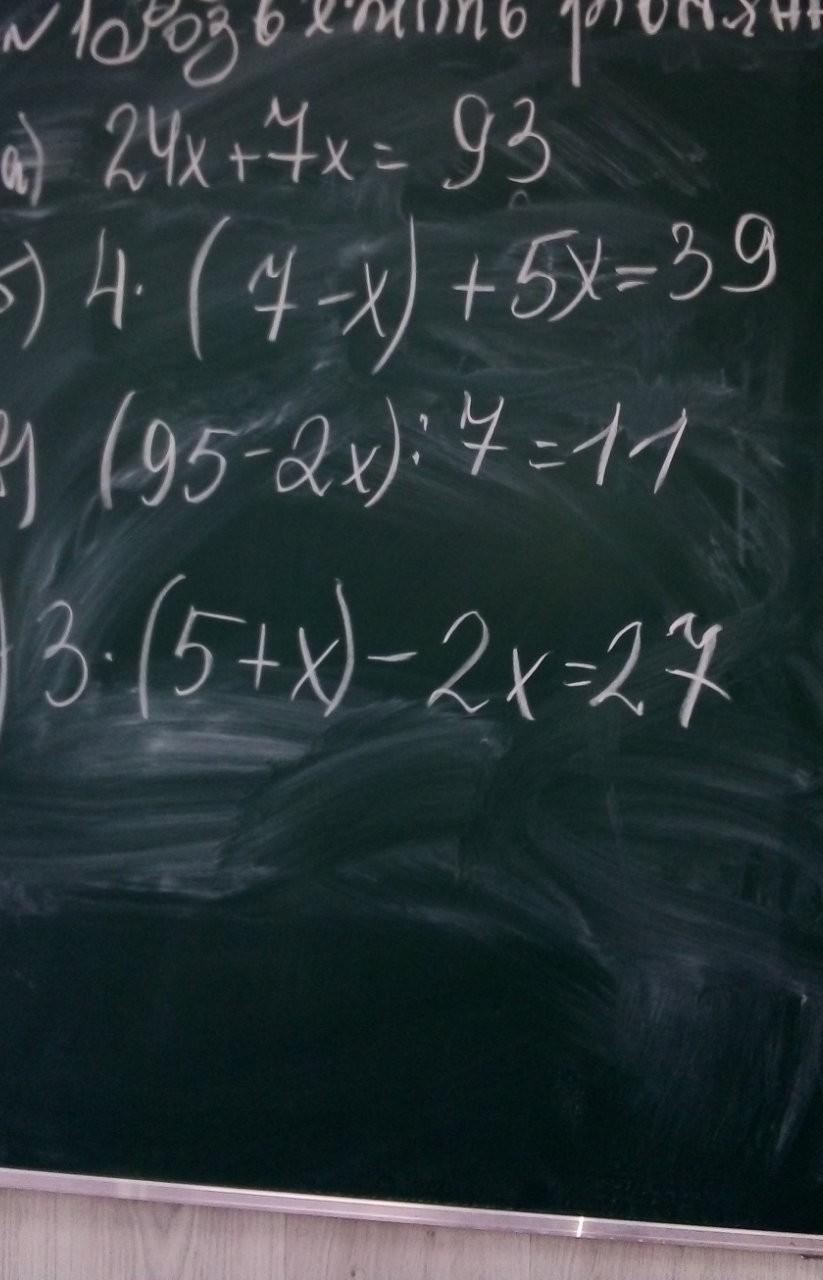 №1 Розв'яжіть рівнян
а) 24x+7x= 93
б) 4·(7-x)+5x=39
в) (95-2x):7=11
) 3·(5+x)-2x=27